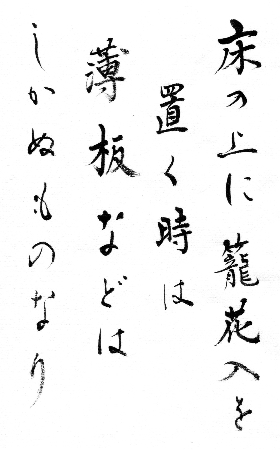 床の上に籠花入を
置く時は
薄板などは
しかぬものなり